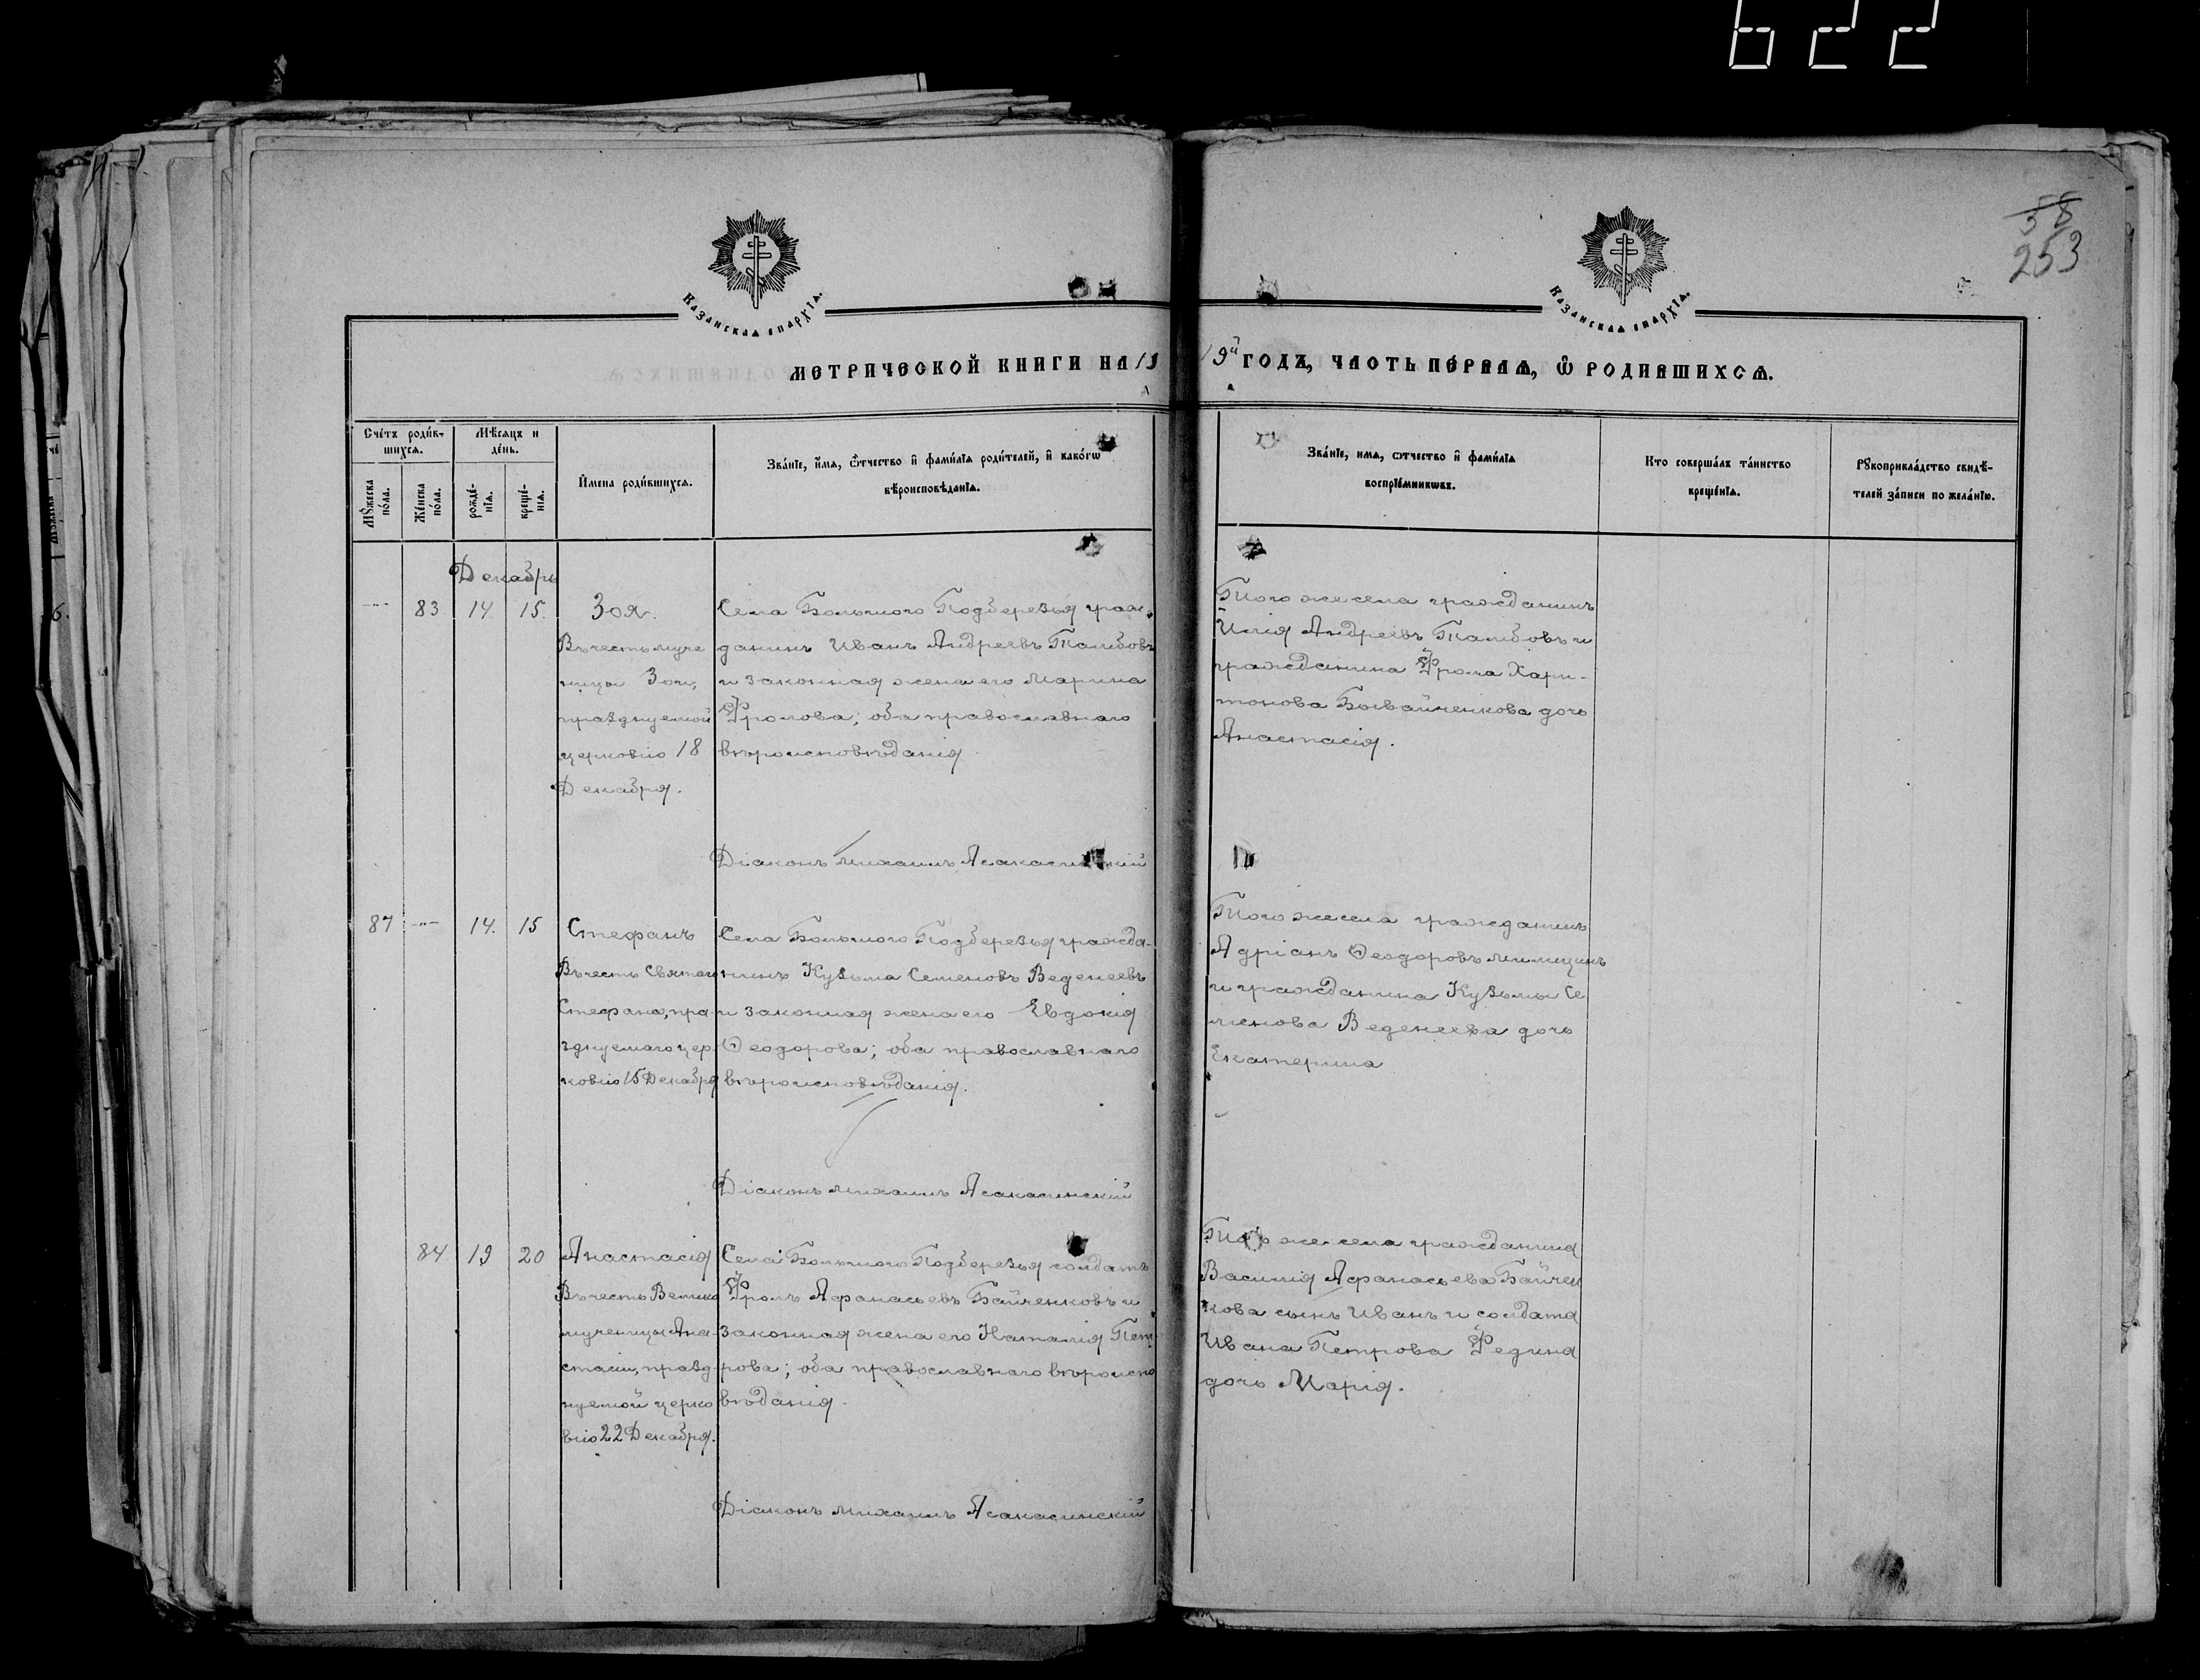 622
58
253
КАЗАНСКАѦ ЕПАРХІѦ.
КАЗАНСКАѦ ЕПАРХІѦ.
МЕТРИЧЕСКОЙ КНИГИ НА 1919й ГОДЪ, ЧАСТЬ ПЕРВАѦ, Ѿ РОДИВШИХСѦ.
Сче́тъ роди́в-
шихсѧ.
Мѣ́сѧцъ и
де́нь.
Мꙋ́жеска
по́ла.
Же́нска
по́ла.
рожде́-
нїѧ.
креще́-
нїѧ.
И҆мена роди́вшихсѧ.
Зва́нїе, и҆́мѧ, ѻ҆́тчество и҆ фами́лїѧ роди́телей, и҆ како́гѡ
вѣроисповѣ́данїѧ.
Зва́нїе, имѧ, ѻтчество и҆ фами́лїѧ
воспрїе́мникѡвъ.
Кто соверша́лъ та́инство
креще́нїѧ.
Рꙋкоприкла́дство свидѣ́-
телей за́писи по жела́нїю.
Декабрь
83 14 15. Зоя.
Въ честь муче
ницы Зои,
празднуемой
церковію 18
Декабря.
Села Большого Подберезья граж-
данинъ Иванъ Андреевъ Талибовъ
и законная жена его Марина
Фролова; оба православнаго
вѣроисповѣданія.
Того же села гражданинъ
Илія Андреевъ Талибовъ и
гражданина Фрола Хари-
тонова дочь
Анастасія.
Діаконъ Михаилъ Асакасинскій
87 14. 15 Стефанъ
Въ честь Святого
Стефана, пра-
зднуемаго цер
ковію 15 Декабря
Села Большого Подберезья гражда-
нинъ Кузьма Семеновъ Веденеевъ
и законная жена его Евдокія
Ѳеодорова; оба православнаго
вѣроисповѣданія.
Того же села гражданинъ
Адріанъ Ѳеодоровъ
и гражданина Кузьмы Се
менова Веденеева дочь
Екатерина
Діаконъ Михаилъ Асакасинскій
84 19 20 Анастасія
Въ честь Велико
мученицы Ана-
стасіи, празд-
нуемой церко
вію 22 Декабря.
Села Большого Подберезья солдатъ
Фролъ Афанасьевъ Байченковъ и
законная жена его Наталія Пет
рова; оба православнаго вѣроиспо
вѣданія.
Того же села гражданина
Василія Афанасьева Байчен
кова сынъ Иванъ и солдата
Ивана Петрова Федина
дочь Марія.
Діаконъ Михаилъ Асакасинскій